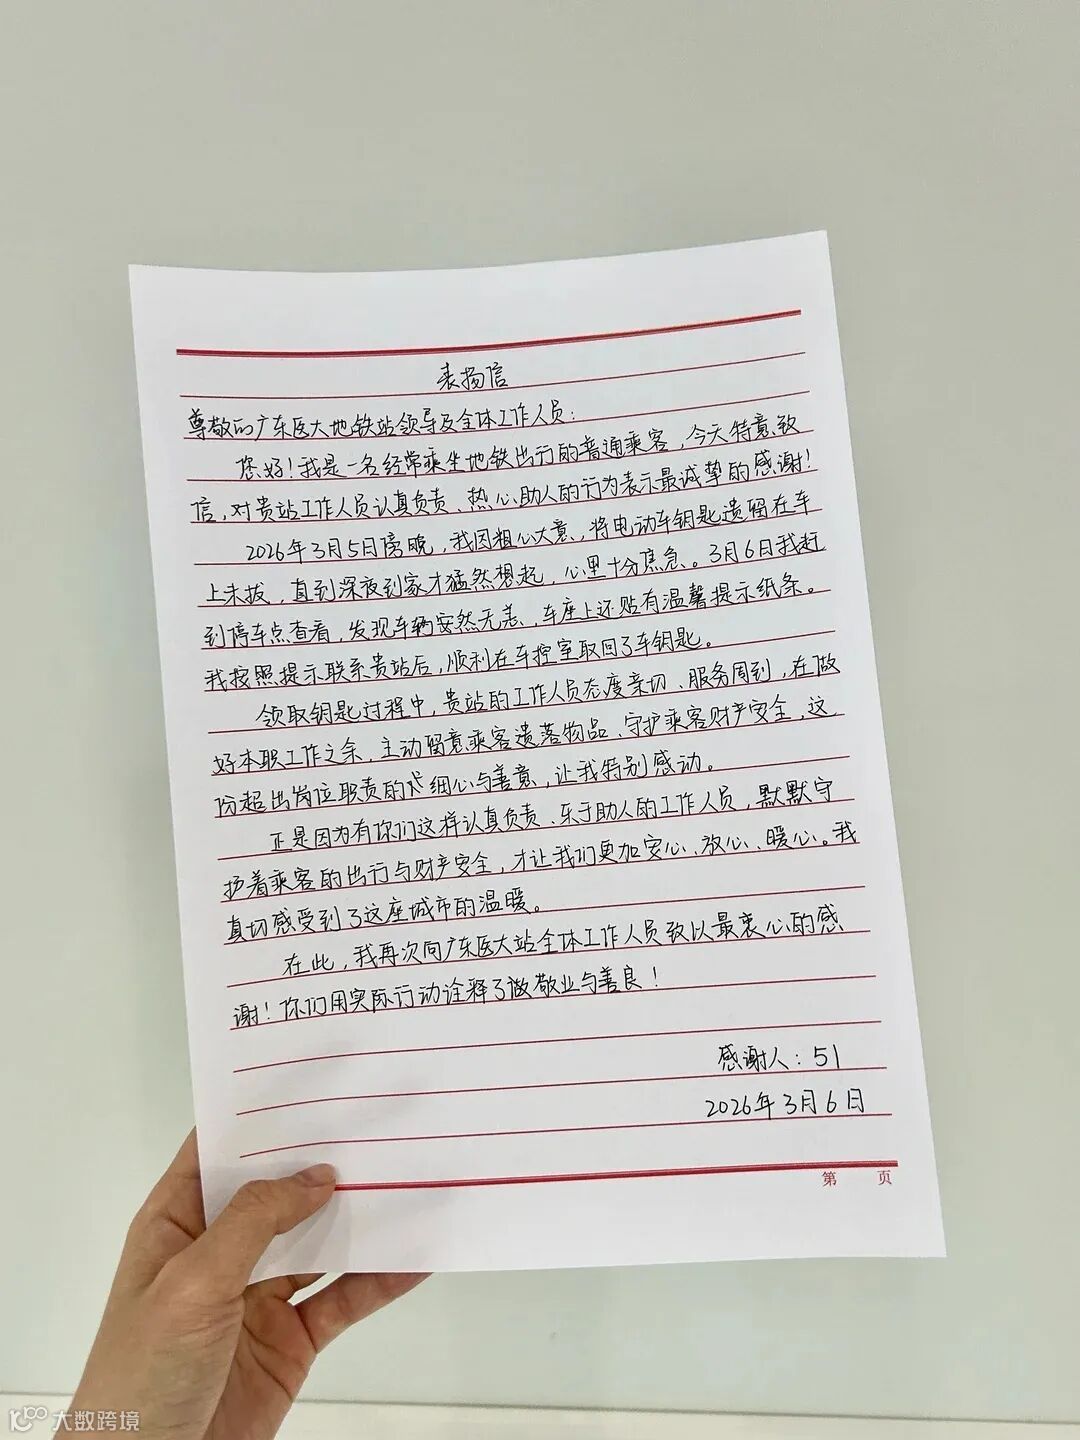 表扬信
尊敬的广东医大地铁站领导及全体工作人员：
您好！我是一名经常乘坐地铁出行的普通乘客，今天特意致
信，对贵站工作人员认真负责、热心助人的行为表示最诚挚的感谢！
2026年3月5日傍晚，我因粗心大意，将电动车钥匙遗留在车
上未拔，直到深夜到家才猛然想起，心里十分焦急。3月6日我赶
到停车点查看，发现车辆安然无恙，车座上还贴有温馨提示纸条。
我按照提示联系贵站后，顺利在车控室取回了车钥匙。
领取钥匙过程中，贵站的工作人员态度亲切、服务周到，在做
好本职工作之余，主动留意乘客遗落物品、守护乘客财产安全，这
份超出岗位职责的细心与善意，让我特别感动。
正是因为有你们这样认真负责、乐于助人的工作人员，默默守
护着乘客的出行与财产安全，才让我们更加安心、放心、暖心。我
真切感受到了这座城市的温暖。
在此，我再次向广东医大站全体工作人员致以最衷心的感
谢！你们用实际行动诠释了做敬业与善良！
感谢人：51
2026年3月6日
第 页
大数跨境